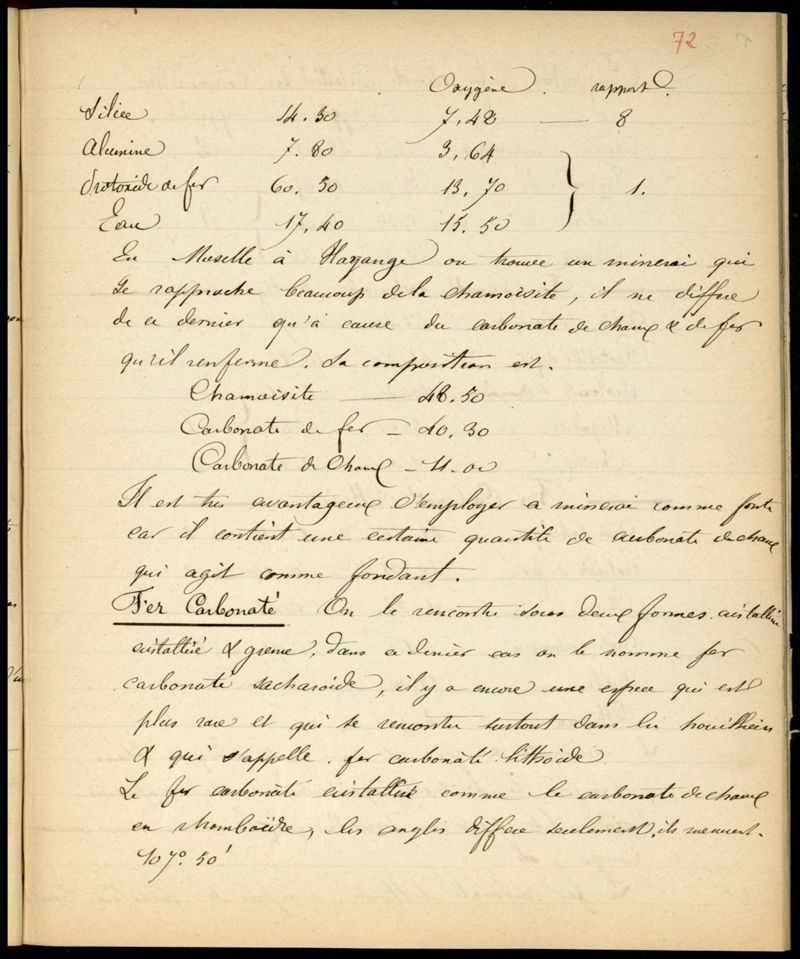 72
Oxygène . rapport.
Silice 14.30 7,48 — 8
Alumine 7.80 3,64
Protoxide de fer 60.50 13,70 } 1.
Eau 17,40 15.50
En Moselle à Hayange on trouve un minerai qui
se rapproche beaucoup de la chamoisite, il ne diffère
de ce dernier qu'à cause du carbonate de chaux & de fer
qu'il renferme. Sa composition est.
Chamoisite — 48.50
Carbonate de fer — 40.30
Carbonate de Chaux — 11.00
Il est très avantageux d'employer ce minerai comme fonte
car il contient une certaine quantité de carbonate de chaux
qui agit comme fondant.
Fer Carbonaté On le rencontre sous deux formes cristalline
cristallisé & grenue, dans ce dernier cas on le nomme fer
carbonaté sacharoïde, il y a encore une espèce qui est
plus rare et qui se rencontre surtout dans les houillères
& qui s'appelle . fer carbonaté lithoïde.
Le fer carbonaté cristallisé comme le carbonate de chaux
en rhomboïdre, les angles diffère seulement, ils mesurent.
107° 50'